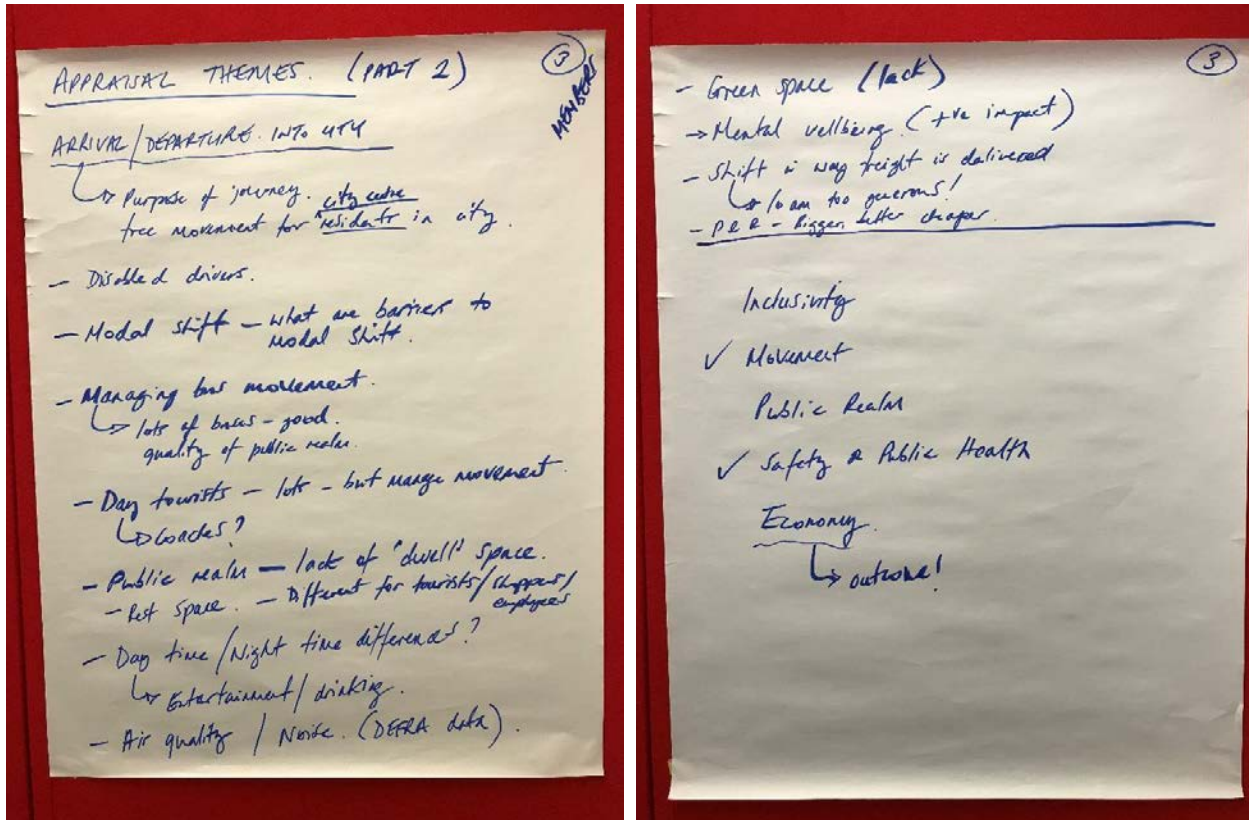 APPRAISAL THEMES. (PART 2)
3
MEMBERS
ARRIVAL/DEPARTURE INTO CITY
↳ Purpose of journey.
city centre
free movement for ^residents in city.
- Disabled drivers.
- Modal shift - what are barriers to
modal shift.
- Managing bus movement.
↳ lots of buses - good.
quality of public realm.
- Day tourists - lots - but manage movement.
↳ coaches?
- Public realm - lack of "dwell" space.
- Rest space. - Different for tourists/shoppers/
employees
- Day time/Night time differences?
↳ Entertainment/drinking.
- Air quality / Noise. (DEFRA data).
3
- Green space (lack)
→ Mental wellbeing. (+ve impact)
- Shift in way freight is delivered
↳ 10am too generous!
- P&R - Bigger, better cheaper.
Inclusivity
✓ Movement
Public Realm
✓ Safety & Public Health
Economy.
↳ outcome!